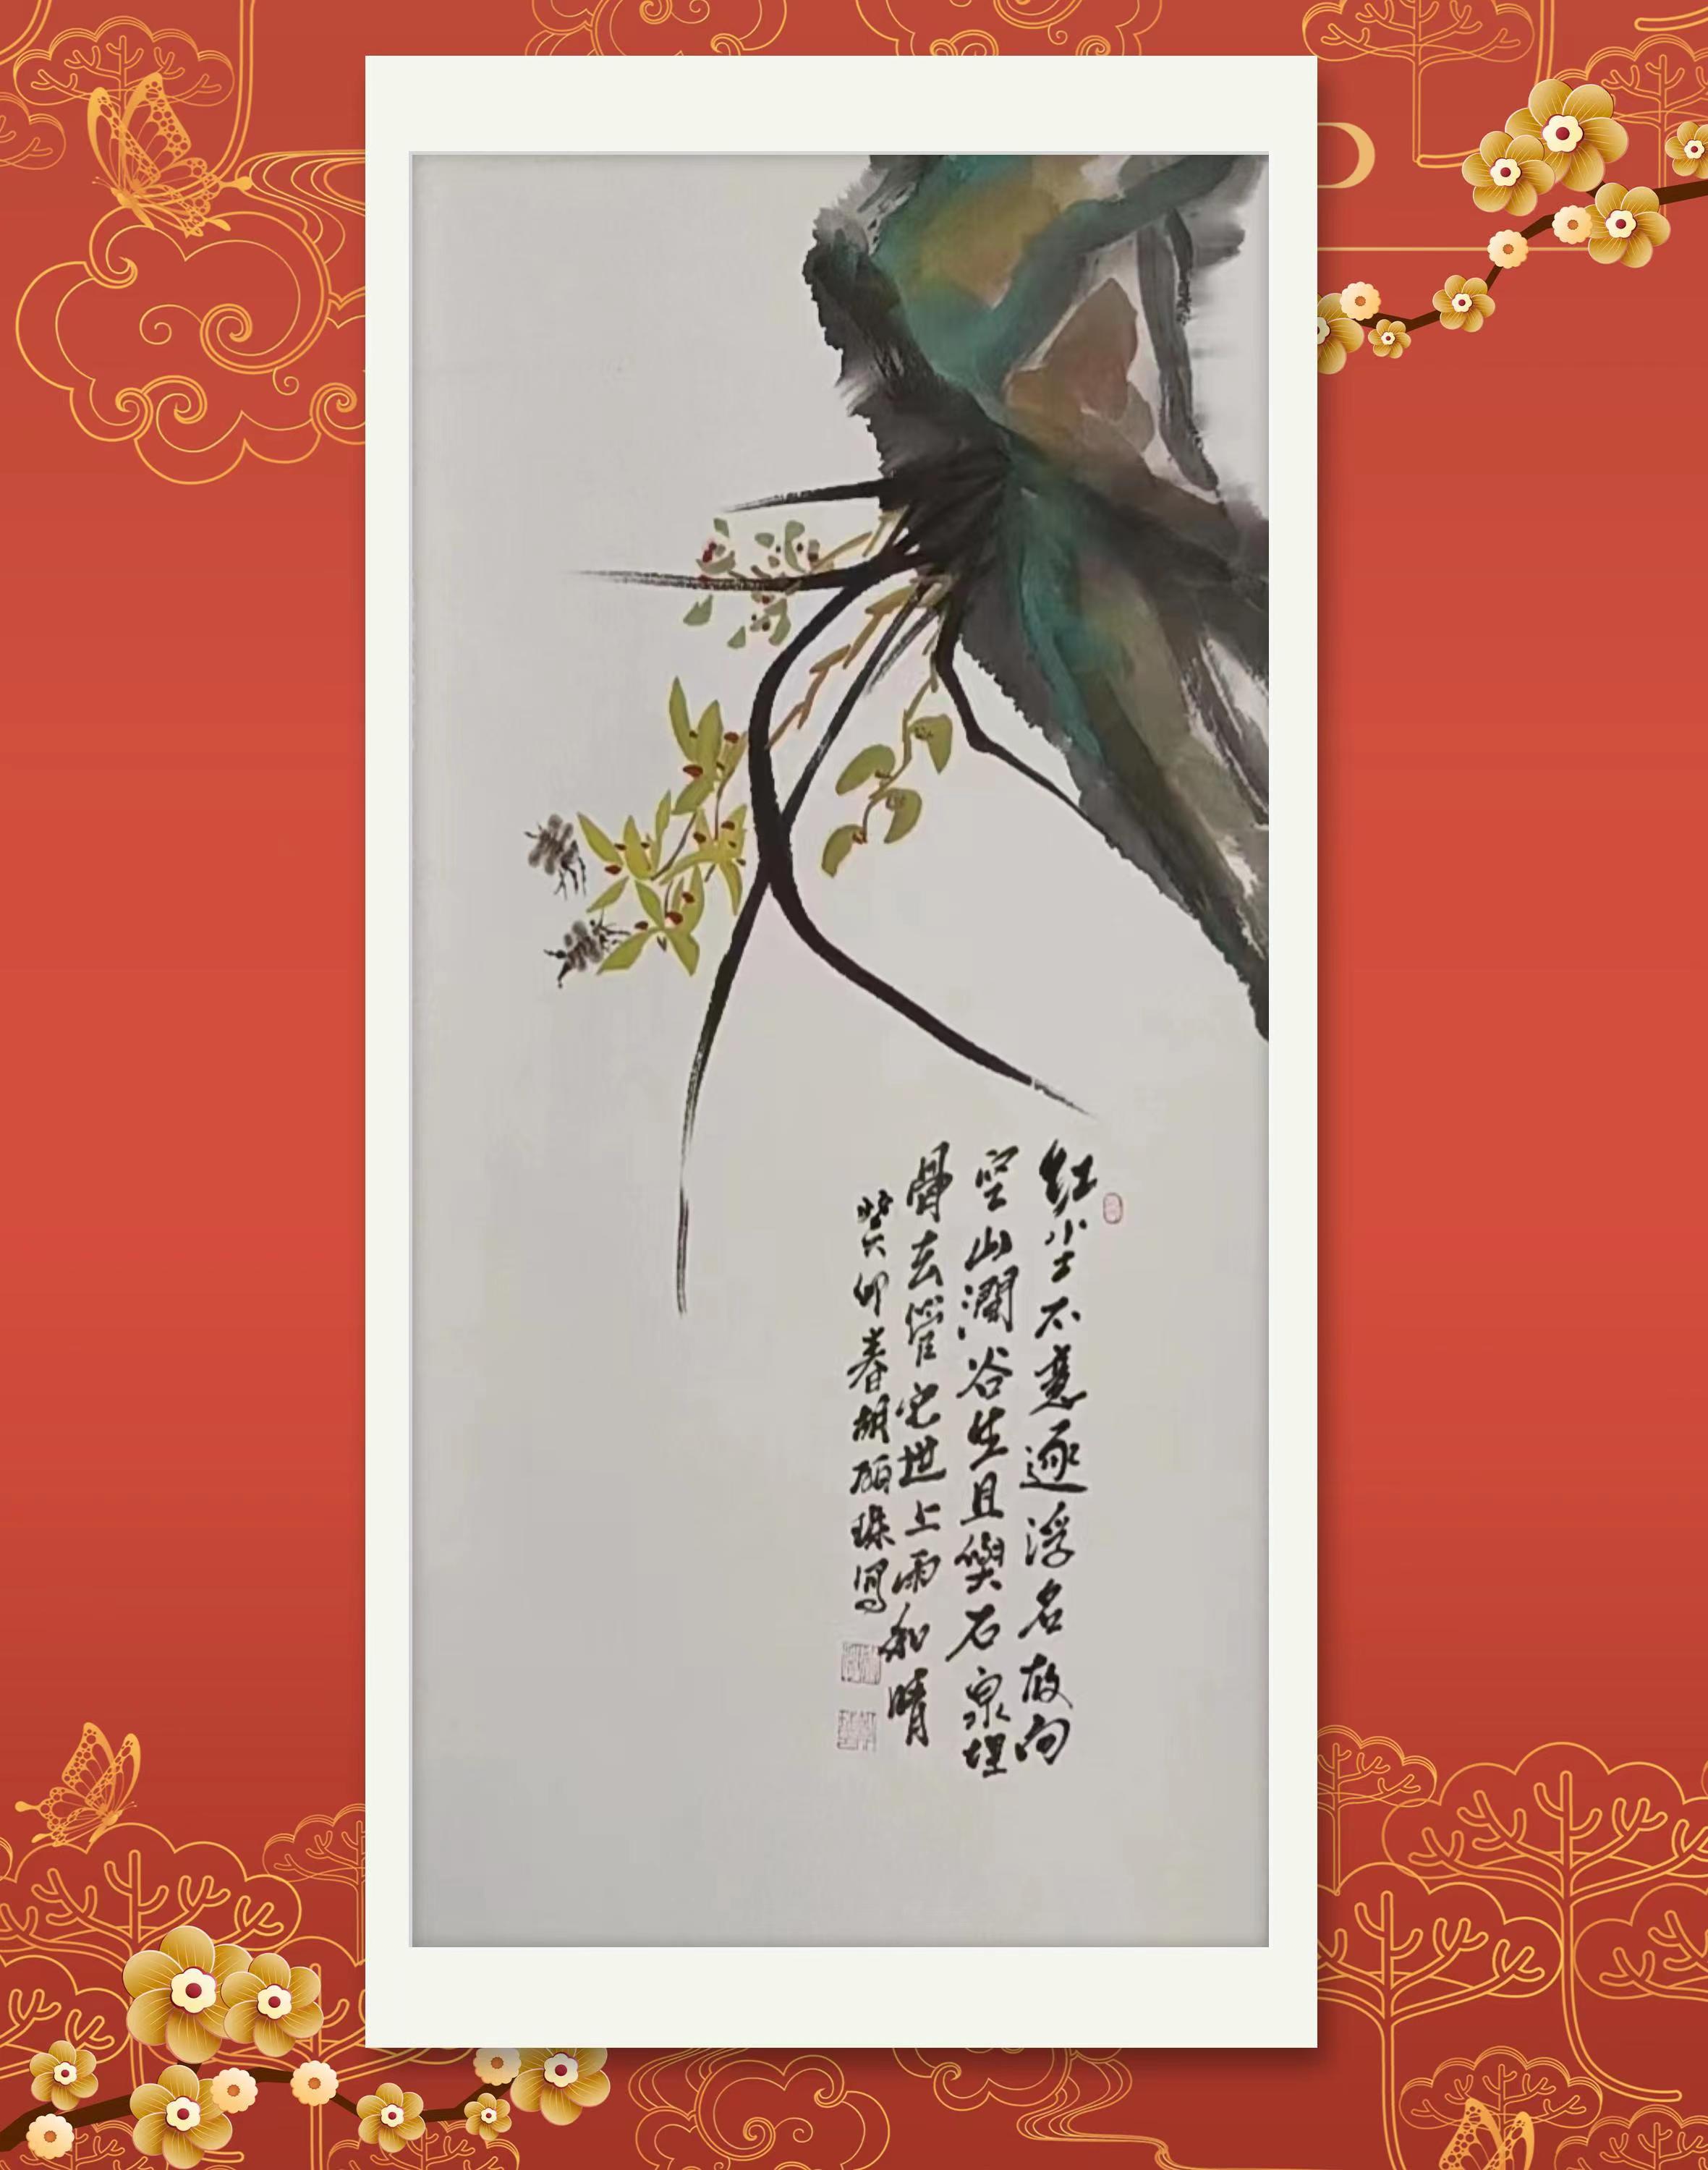 红尘不意逐浮名故向
空山澗谷生且與石泉埋
骨去管它世上雨和晴
癸卯春胡碩珠寫